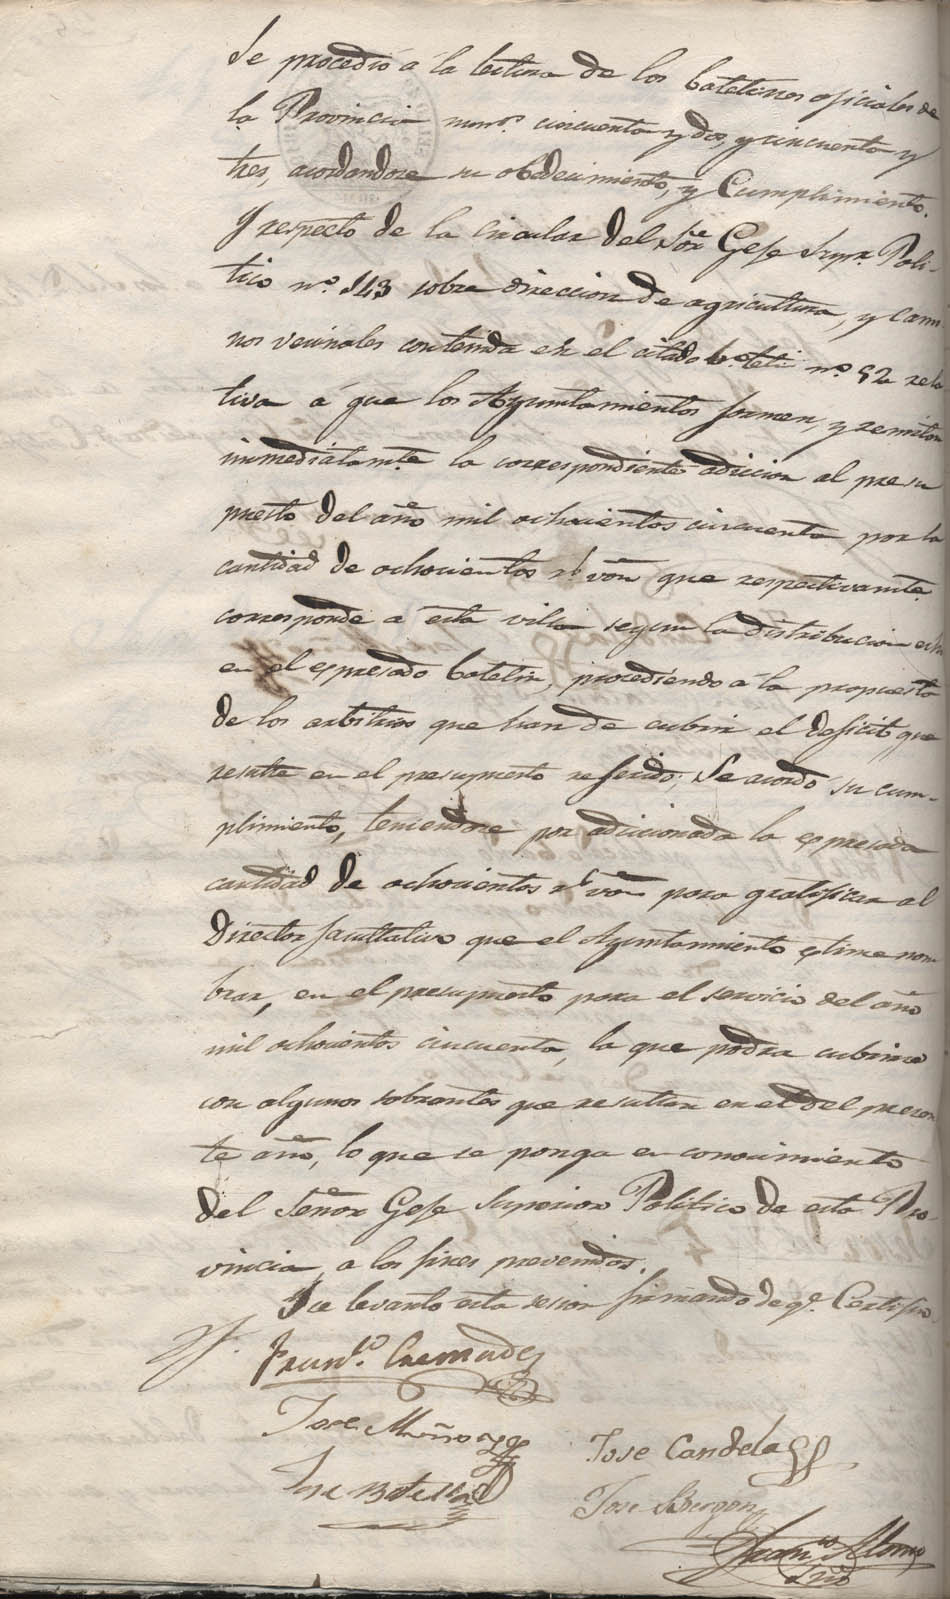 Se procedió á la lectura de los boletines oficiales de
la Provincia num.s cincuenta y dos, y cincuenta y
tres, acordandose su obedecimiento, y Cumplimiento.
Y respecto de la circular del Sõr Gefe Supr. Poli-
tico n.º 143 sobre direccion de agricultura, y cami
nos vecinales contenida en el citado boletin n.º 52 rela
tiva á que los Ayuntamientos formen, y remitan
inmediatam.te la correspondiente adicion al presu
puesto del año mil ochocientos cincuenta por la
cantidad de ochocientos r.s võn que respectivam.te
corresponde á esta villa segun la distribucion echa
en el espresado boletin, procediendo á la propuesta
de los arbitrios que han de cubrir el deficit que
resulte en el presupuesto referido; Se acordó su cum-
plimiento, teniendose por adicionada la espresada
cantidad de ochocientos r.s võn para gratificar al
Director facultativo que el Ayuntamiento estime nom
brar, en el presupuesto para el servicio del año
mil ochocientos cincuenta, la que podra cubrirse
con algunos sobrantes que resultan en el del presen
te año, lo que se ponga en conocimiento
del Señor Gefe Superior Politico de esta Pro-
vincia, a los fines prevenidos.
Y se levantó esta sesion firmando de q.e Certifico.
Fran.co Cremades
Jose Muñoz
Jose Candela
Jose Botella
Jose
Fran.co Alonso
Srio